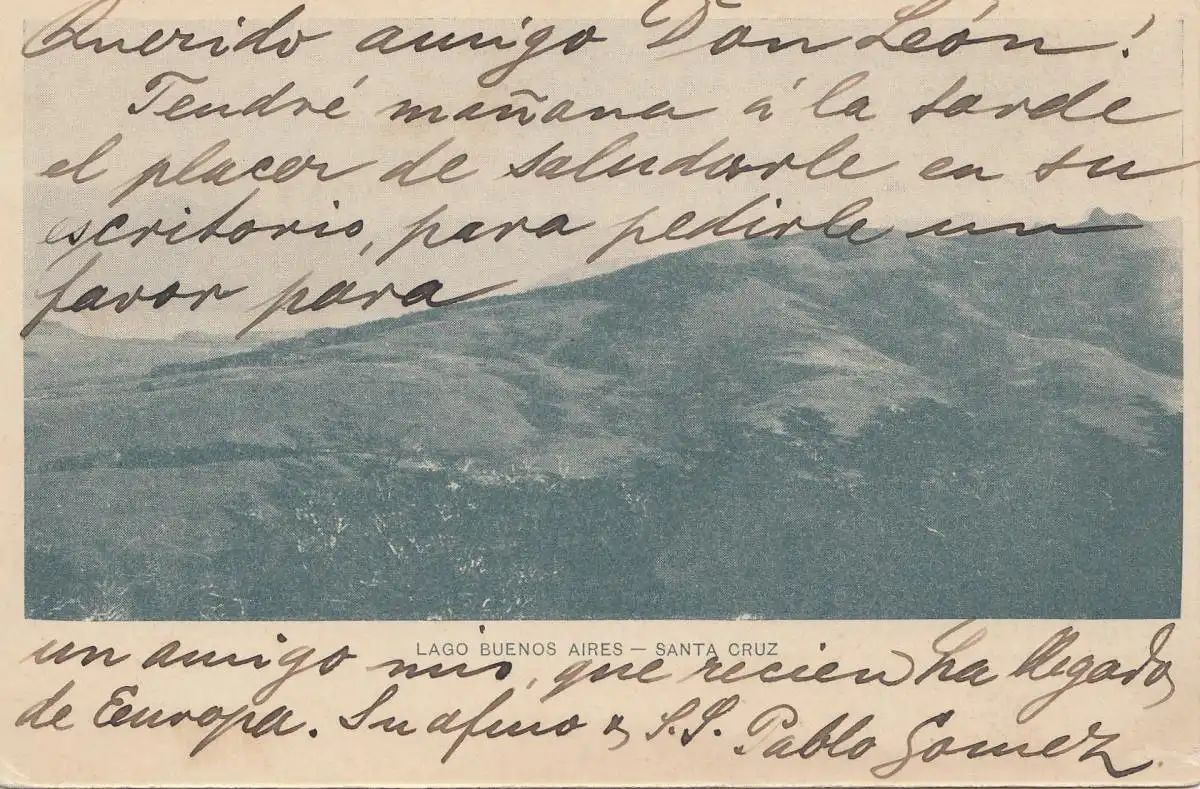 Querido amigo Don León!
Tendré mañana á la tarde
el placer de saludarle en su
escritorio, para pedirle un
favor para
LAGO BUENOS AIRES — SANTA CRUZ
un amigo mio, que recien ha llegado
de Europa. Su afmo y S.S. Pablo Gomez.